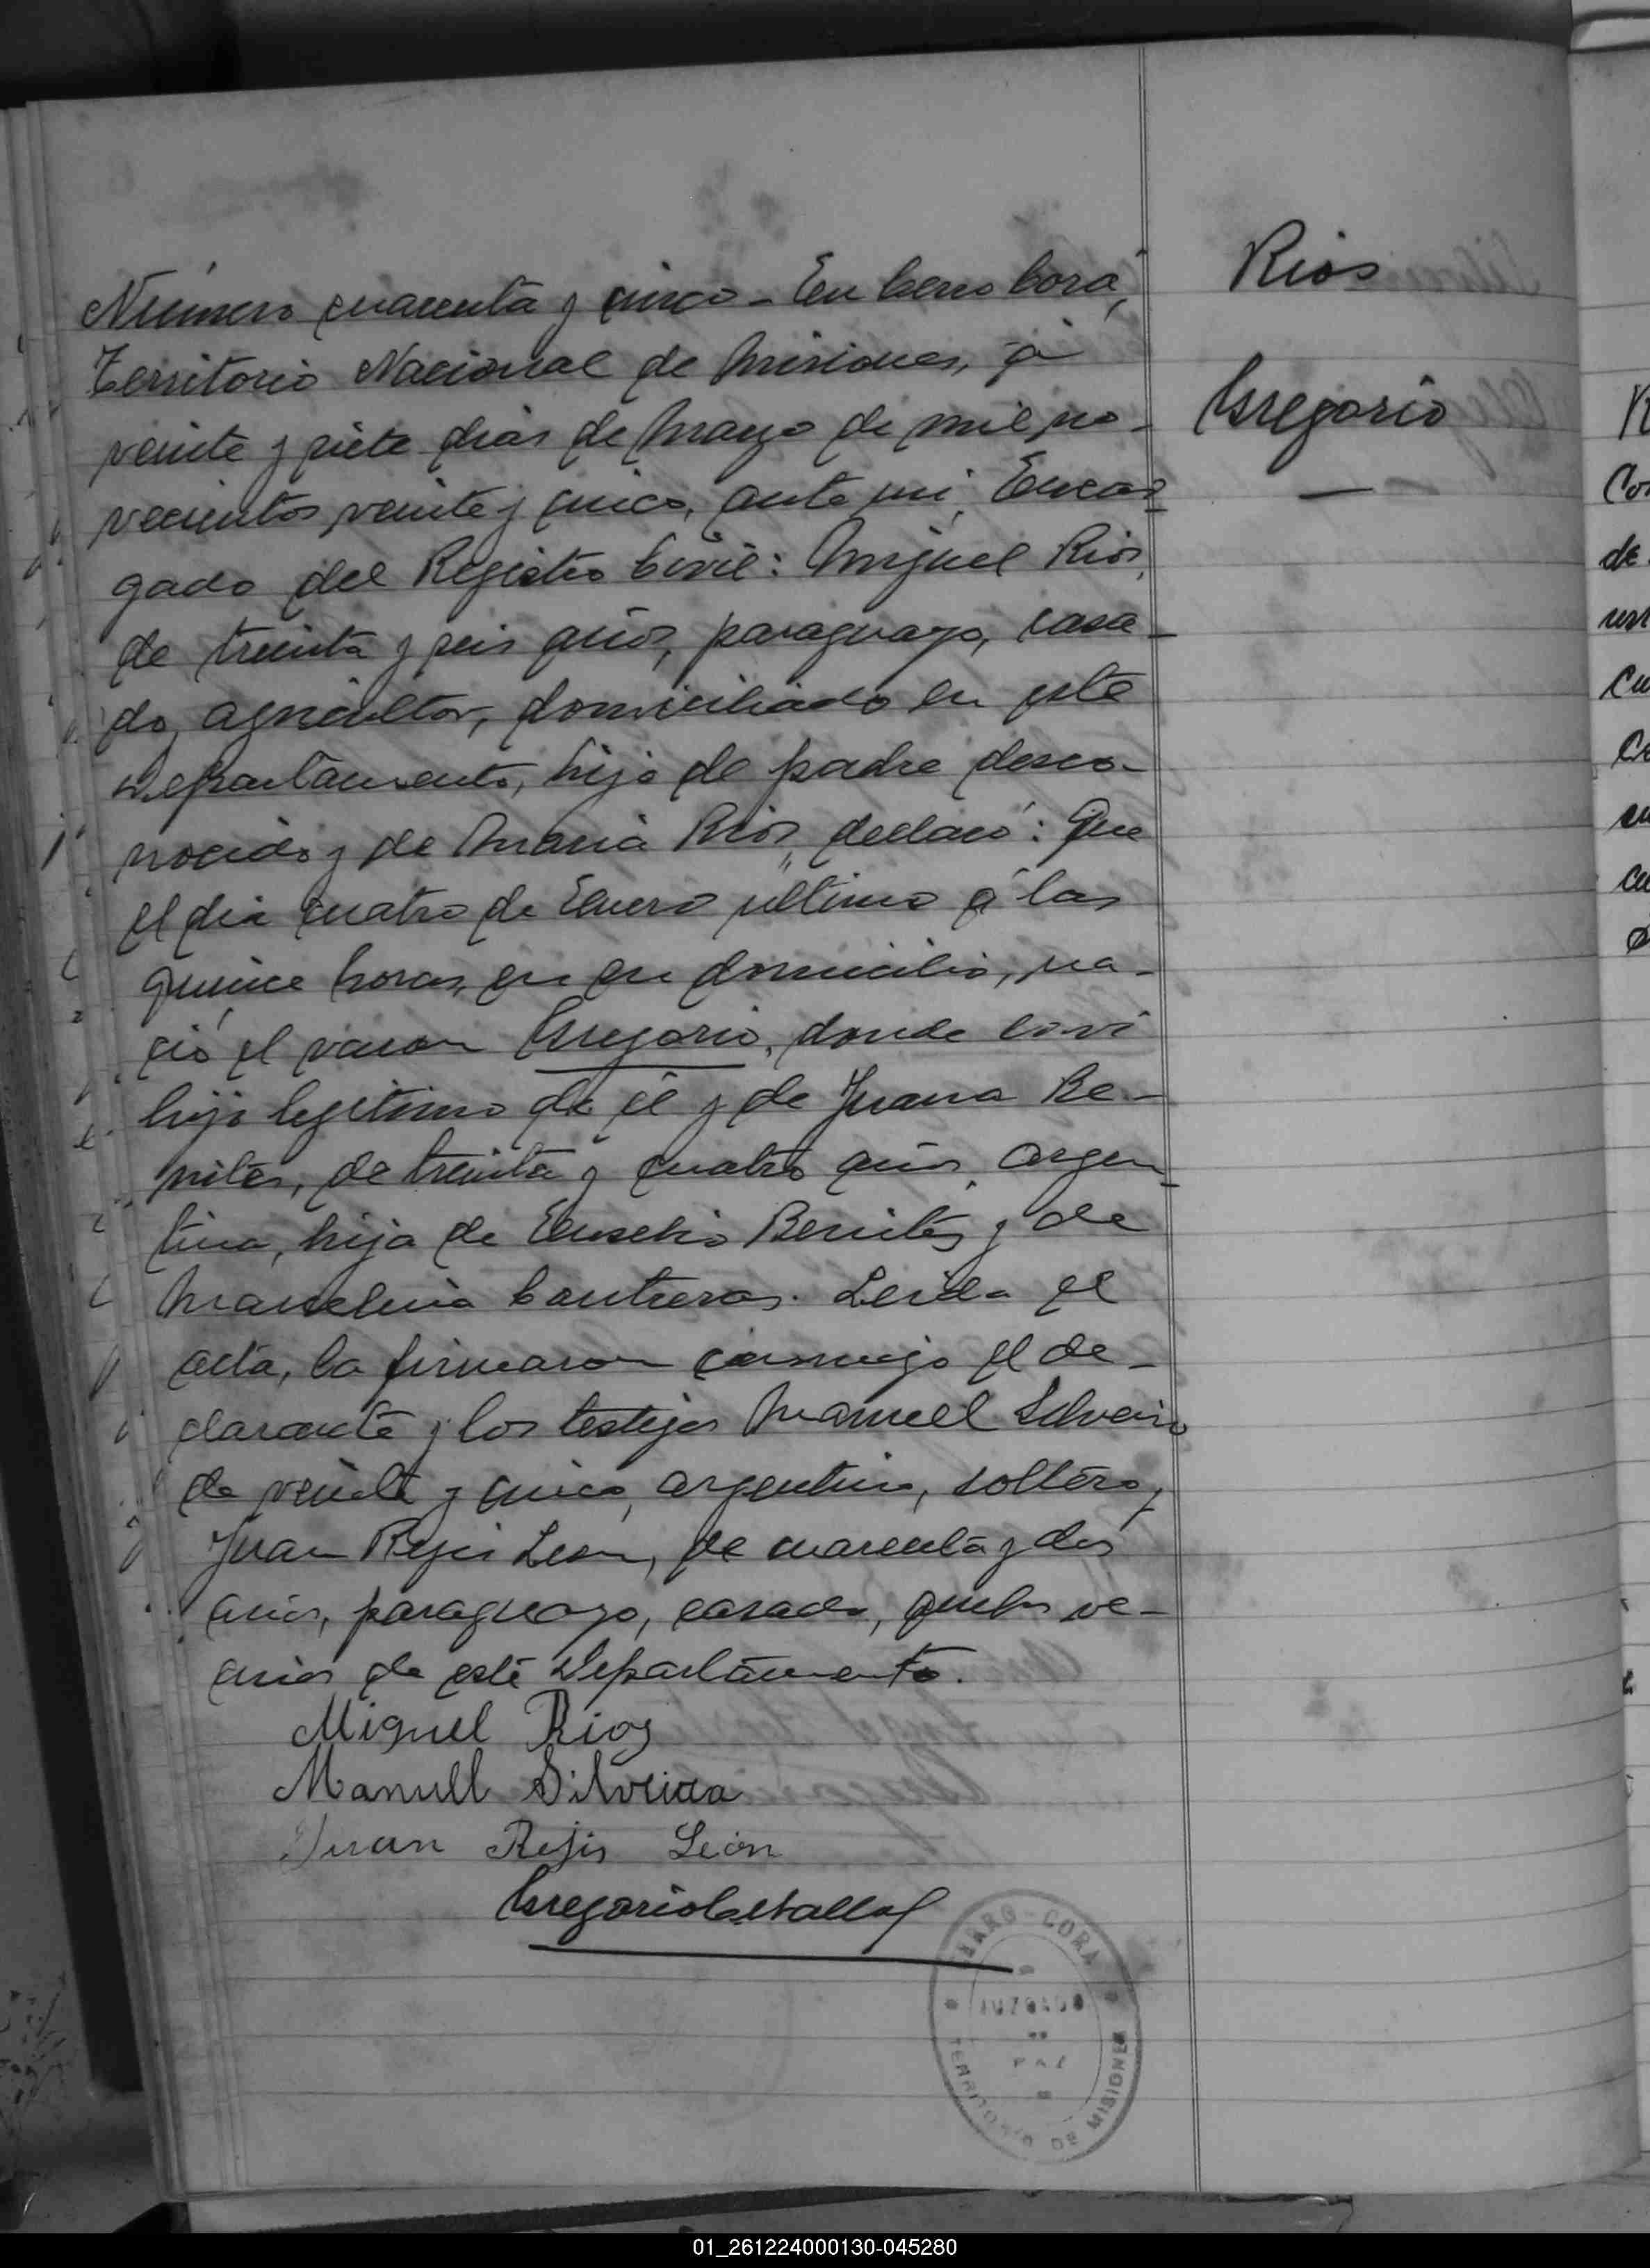 Rios
Gregorio
Número cuarenta y cinco - En Cerro Corá,
Territorio Nacional de Misiones, á
veinte y siete dias de Marzo de mil no-
vecientos veinte y cinco, ante mi, Encar-
gado del Registro Civil: Miguel Rios,
de treinta y seis años, paraguayo, casa-
do, agricultor, domiciliado en este
Departamento, hijo de padre desco-
nocido y de Maria Rios, declaró: Que
el dia cuatro de Enero ultimo á las
quince horas, en su domicilio, na-
ció el varon Gregorio, donde lo vi
hijo legitimo de él y de Juana Be-
nites, de treinta y cuatro años, argen-
tina, hija de Eusebio Benites y de
Marcelina Contreras. Leida el
acta, la firmaron conmigo el de-
clarante y los testigos Manuel Silveiro
de veinte y cinco, argentino, soltero,
Juan Rejis Leon, de cuarenta y dos
años, paraguayo, casado, ambos ve-
cinos de este Departamento.
Miguel Rios
Manuel Silveira
Juan Rejis León
Gregorio
CERRO-CORA
JUZGADO
DE
PAZ
TERRITORIO DE MISIONES
01_261224000130-045280